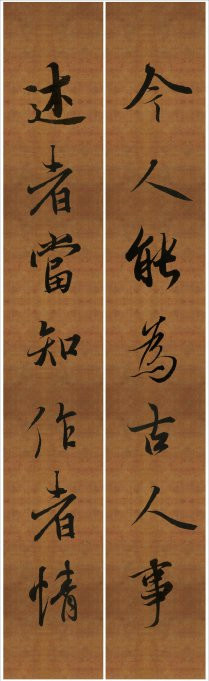 今人能為古人事
述者當知作者情